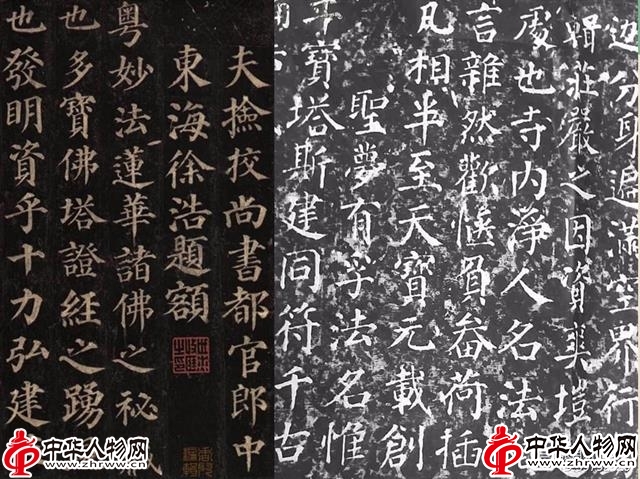 夫撿挍尚書都官郎中
東海徐浩題額
粵妙法蓮華諸佛之秘
也多寶佛塔證經之踴
也發明資乎十力弘建
分身遍滿空界行
輯莊嚴之因資爽塏
處也寺内淨人名法
言雜然歡愜負畚荷插
凡相半至天寶元載創
聖夢有孚法名惟
寶塔斯建同符千古
中华人物网
www.zhrww.com
中华人物网
www.zhrww.com